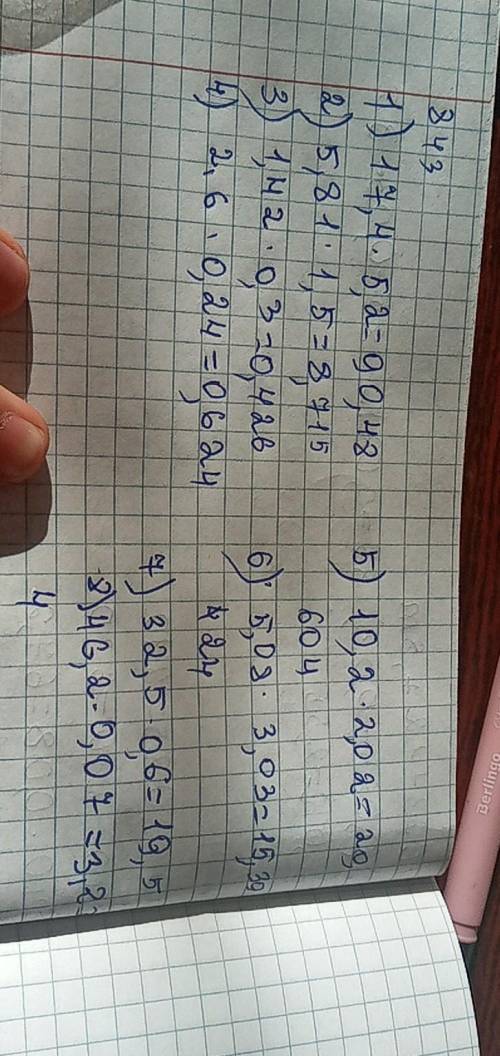 343
1) 17,4 · 5,2 = 90,48
2) 5,81 · 1,5 = 8,715
3) 1,42 · 0,3 = 0,426
4) 2,6 · 0,24 = 0,624
5) 10,2 · 2,02 = 20,
604
6) 5,08 · 3,03 = 15,39
424
7) 32,5 · 0,6 = 19,5
8) 46,2 · 0,07 = 3,23
4
Berlingo